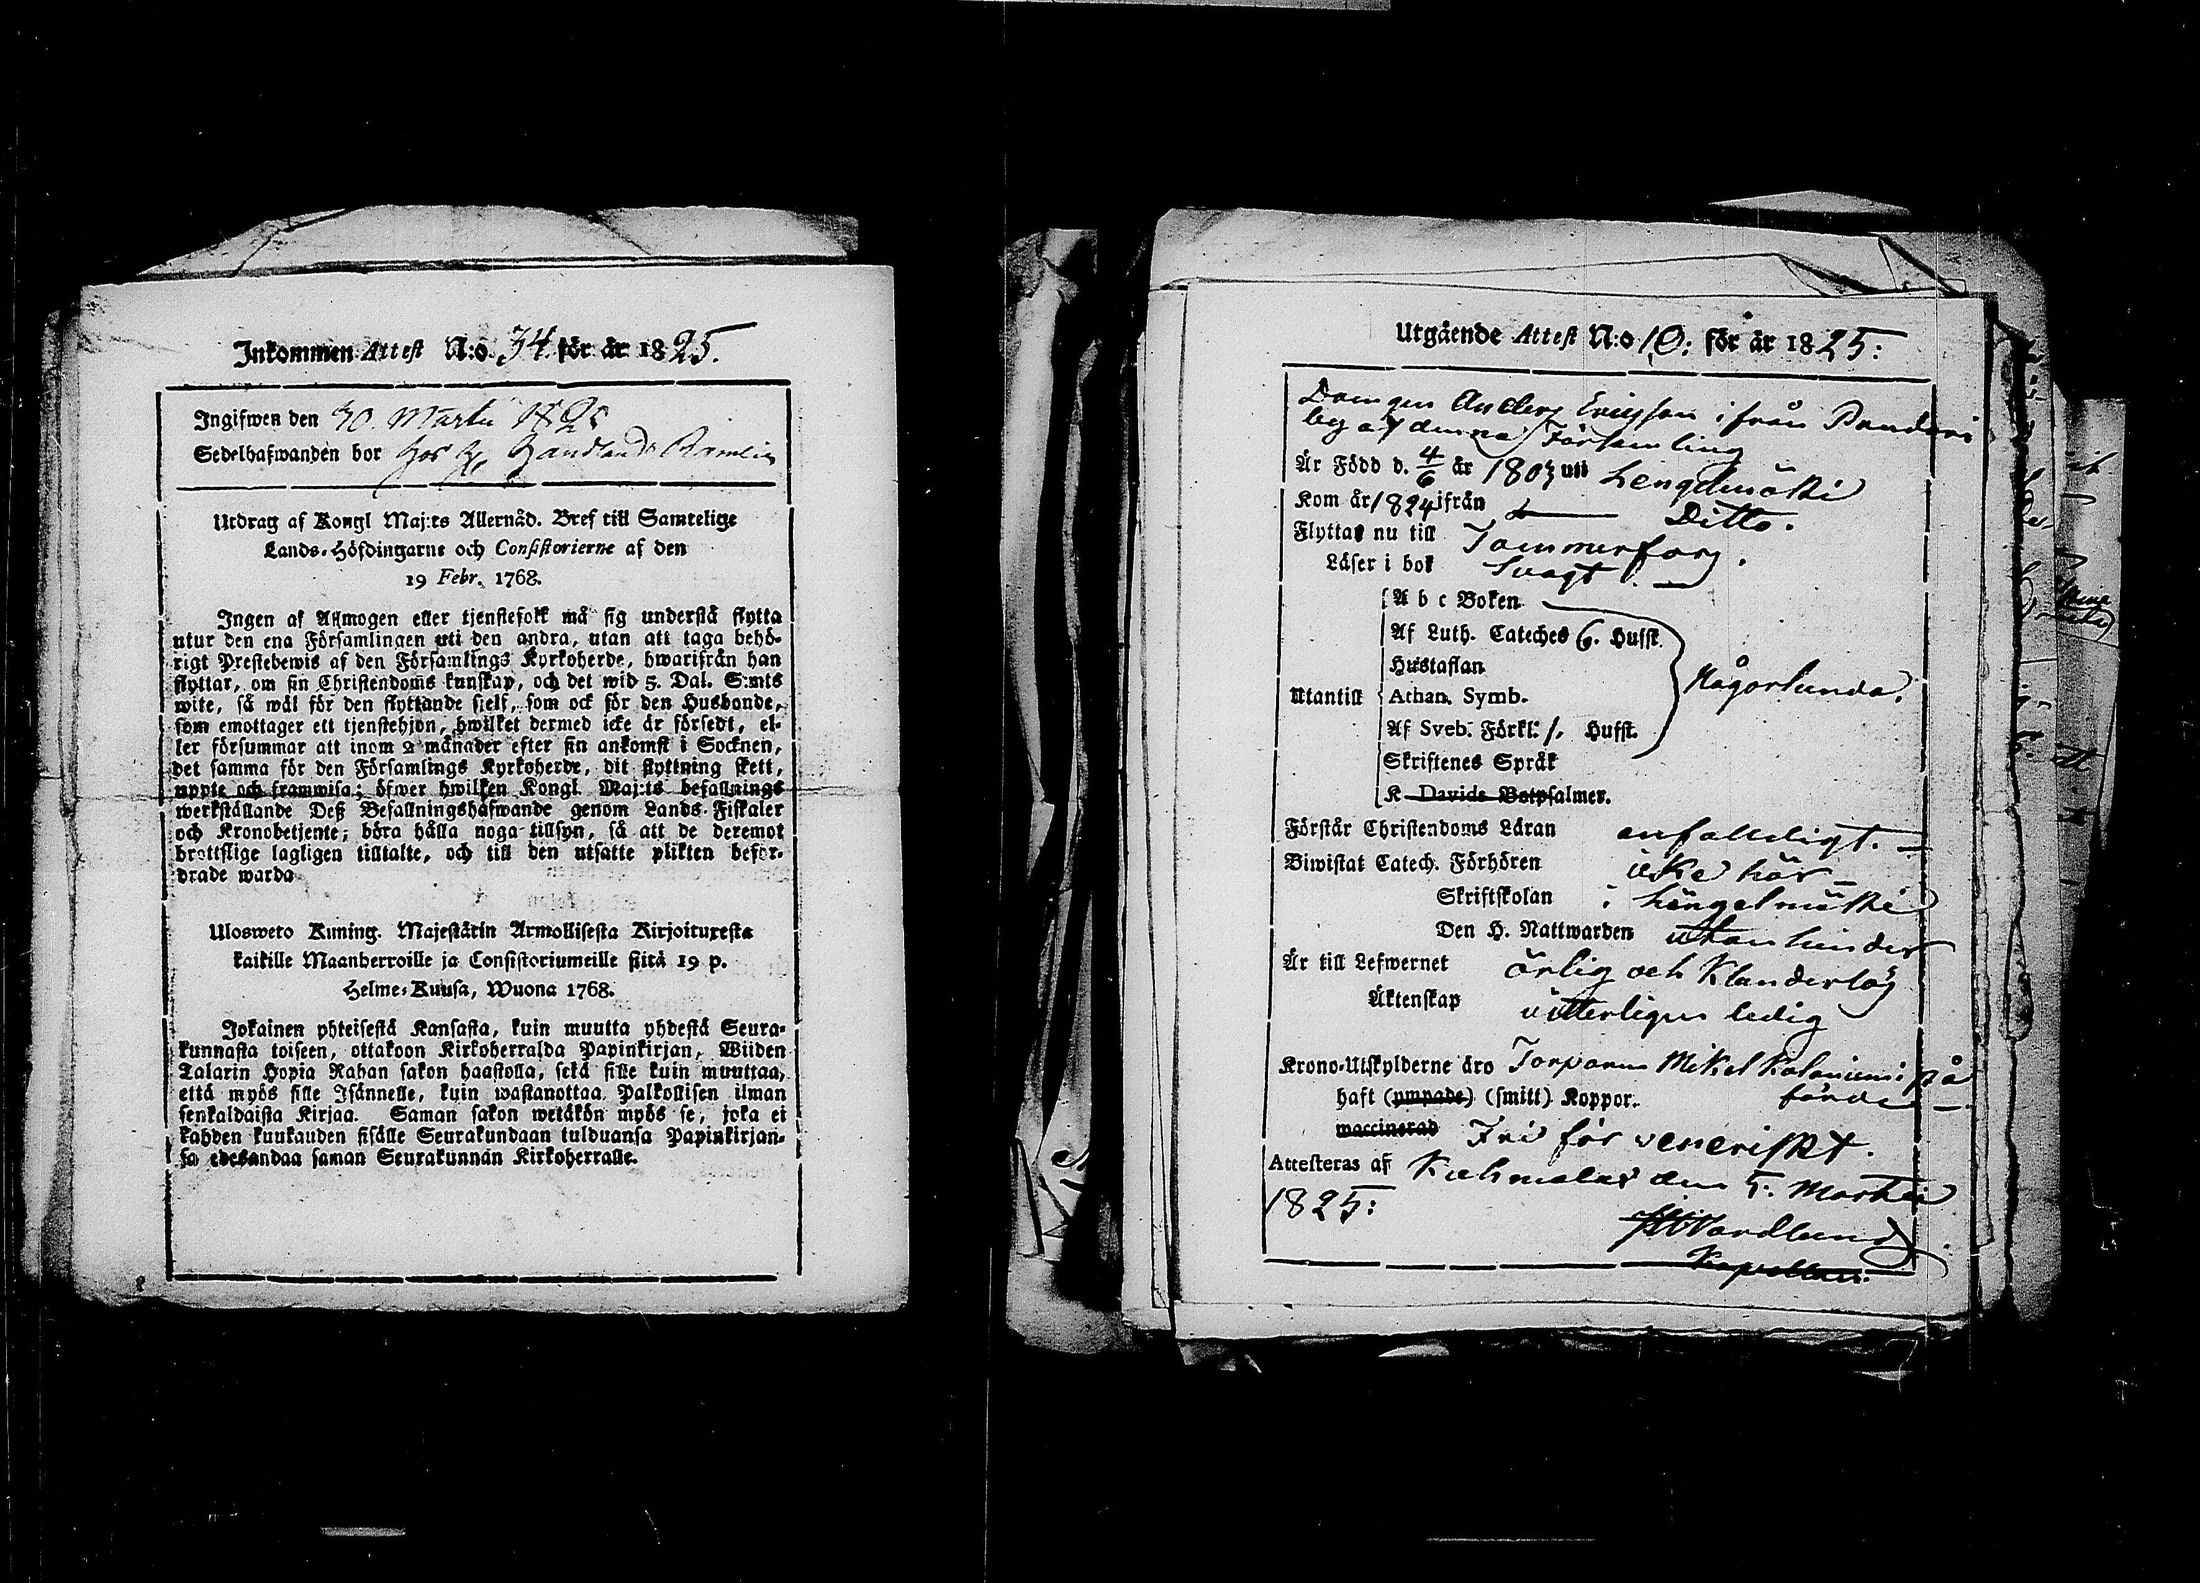 Inkommen Attest N:o 34 för år 1825.
Ingifwen den 30 Martii 1825
Sedelhafwanden bor hos H.
Utdrag af Kongl Maj:ts Allernåd. Bref till Samtelige
Lands-Höfdingarne och Consistorierne af den
19 Febr. 1768.
Ingen af Allmogen eller tjenstefolk må sig understå flytta
utur den ena Församlingen uti den andra, utan att taga behö-
rigt Prestebewis af den Församlings Kyrkoherde, hwarifrån han
flyttar, om sin Christendoms kunskap, och det wid 5. Dal. S:mts
wite, så wäl för den flyttande sjelf, som ock för den Husbonde,
som emottager ett tjenstehjon, hwilket dermed icke är försedt, el-
ler försummar att inom 2 månader efter sin ankomst i Socknen,
det samma för den Församlings Kyrkoherde, dit flyttning skett,
uppte och framwisa; öfwer hwilken Kongl. Maj:ts befallnings
werkställande Deß Befallningshafwande genom Lands-Fiskaler
och Kronobetjente, böra hålla noga tillsyn, så att de deremot
brottslige lagligen tilltalte, och till den utsatte plikten befor-
drade warda
Ulosweto Kuning. Majestätin Armollisesta Kirjoituxesta
kaikille Maanherroille ja Consistoriumeille siitä 19 p.
Helme-Kuusa, Wuona 1768.
Jokainen yhteisestä Kansasta, kuin muutta yhdestä Seura-
kunnasta toiseen, ottakoon Kirkoherralda Papinkirjan, Wiiden
Talarin Hopia Rahan sakon haastolla, sekä sille kuin muuttaa,
että myös sille Isännelle, kuin wastanottaa Palkollisen ilman
senkaldaista Kirjaa. Saman sakon wetäkön myös se, joka ei
kahden kuukauden sisälle Seurakundaan tulduansa Papinkirjan-
sa edesandaa saman Seurakunnan Kirkoherralle.
Utgående Attest N:o 10: för år 1825:
Drängen Anders Ericsson ifrån
by af denna Församling
Är Född d. 4/6 år 1803 uti Lengelmäki
Kom år 1824 ifrån — Ditto.
Flyttar nu till Tammerfors.
Läser i bok Svagt. —
Utantill
A b c Boken
Af Luth. Cateches 6. Hufst.
Hustaflan
Athan. Symb.
Af Sveb. Förkl: 1. Hufst.
Någorlunda.
Skriftenes Språk
K Davids Botpsalmer.
Förstår Christendoms Läran enfaldigt. —
Biwistat Catech. Förhören icke här —
Skriftskolan i Längelmäki
Den H. Nattwarden utan hinder
Är till Lefwernet ärlig och Klanderlös
Äktenskap ytterligen ledig
Krono-Utskylderne äro Torparen Mikel Kalaniemi på
förde —
haft (ympade) (smitt) Koppor.
waccinerad Fri för veneriskt.
Attesteras af Kuhmalax den 5. Martii
1825:
Wandlund
Kapellan.